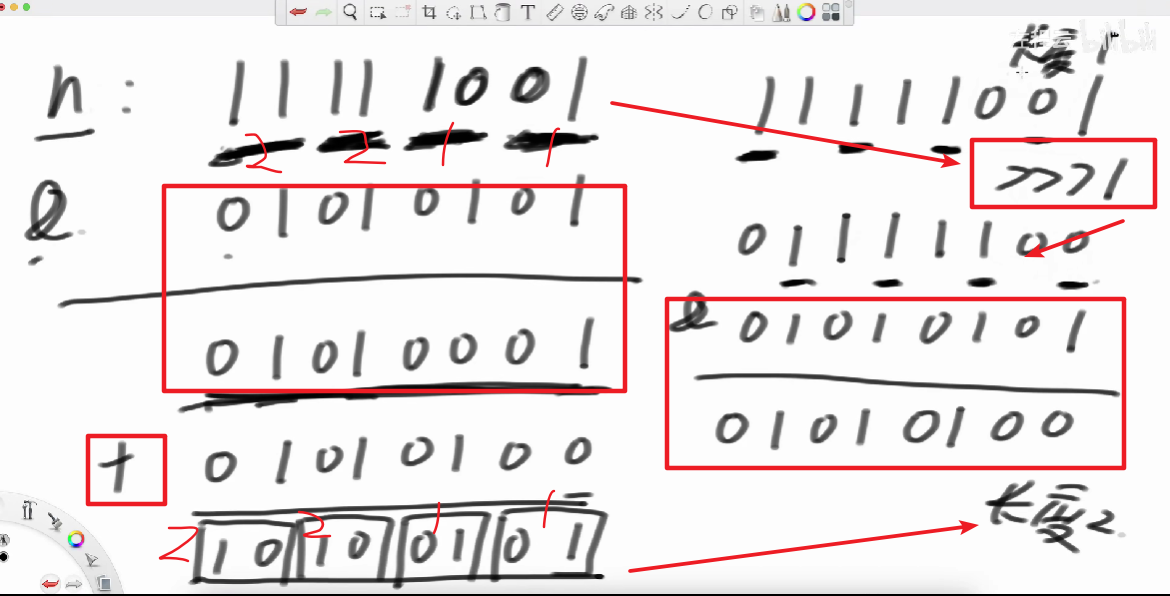 n: 1 1 1 1 1 0 0 1
2 2 1 1
& 0 1 0 1 0 1 0 1
0 1 0 1 0 0 0 1
+ 0 1 0 1 0 1 0 0
2 2 1 1
1 0 1 0 0 1 0 1
长度 1
1 1 1 1 1 0 0 1
>>> 1
0 1 1 1 1 1 0 0
& 0 1 0 1 0 1 0 1
0 1 0 1 0 1 0 0
长度2
bilibili